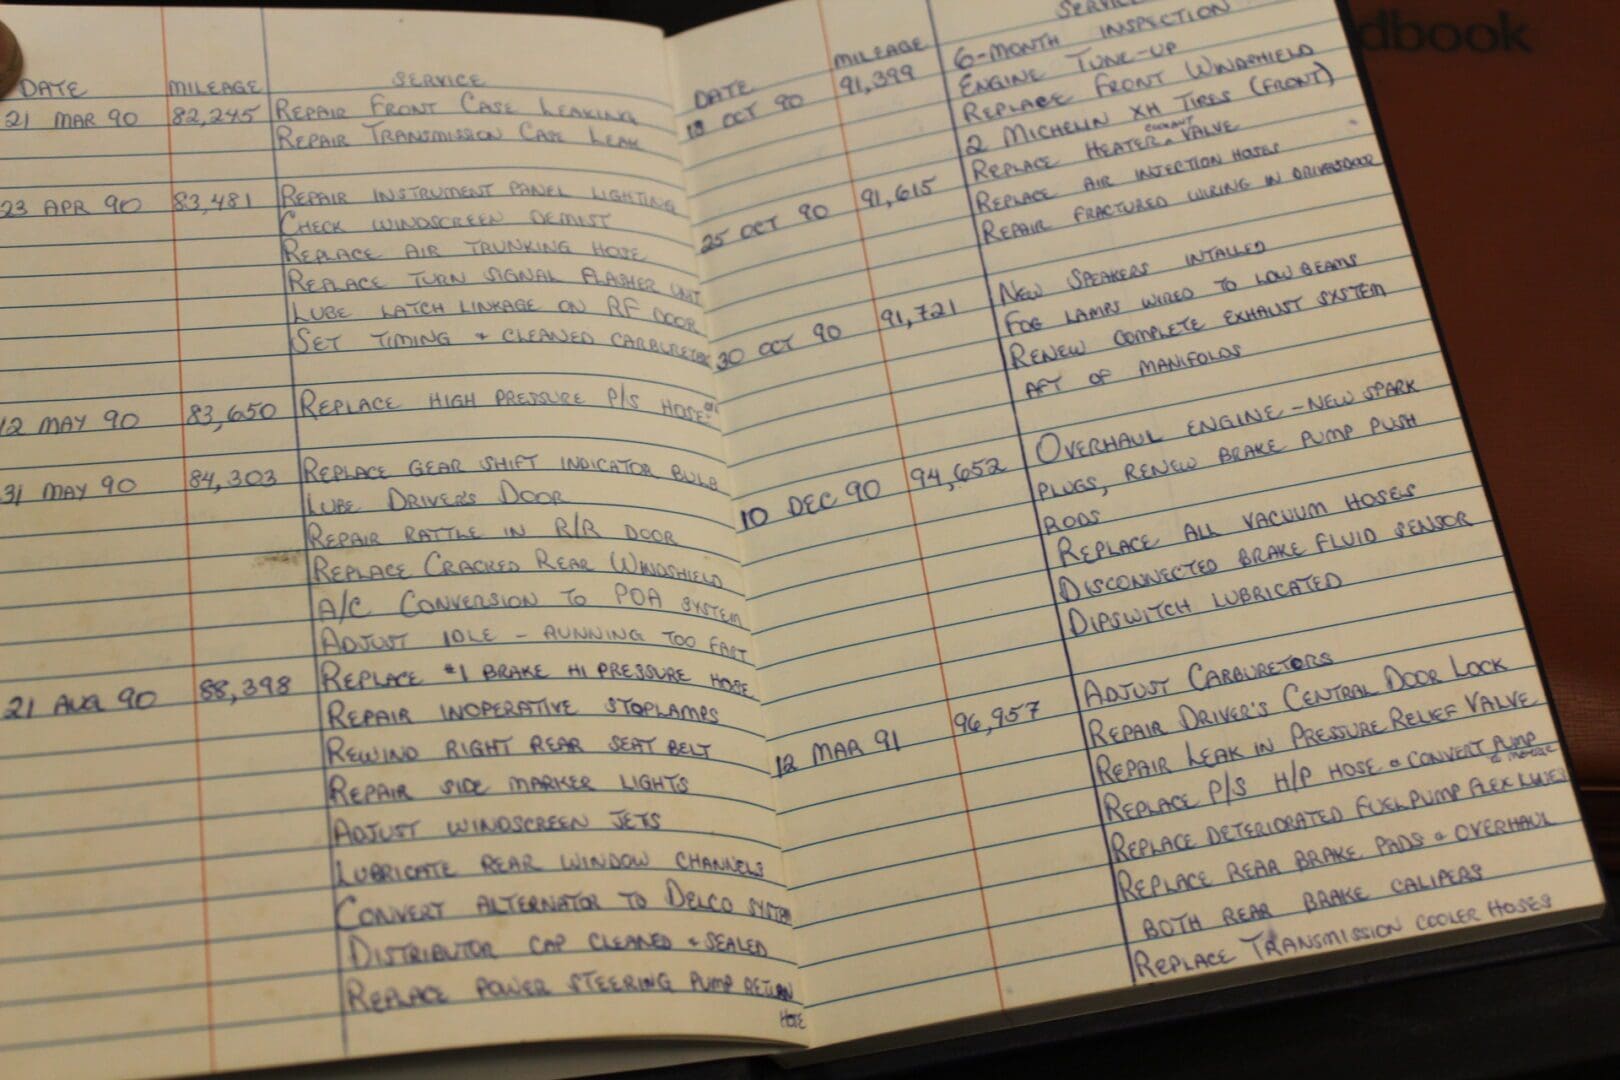 DATE MILEAGE SERVICE
21 MAR 90 82,245 REPAIR FRONT CASE LEAKING
REPAIR TRANSMISSION CASE LEAK
23 APR 90 83,481 REPAIR INSTRUMENT PANEL LIGHTING
CHECK WINDSCREEN DEMIST
REPLACE AIR TRUNKING HOSE
REPLACE TURN SIGNAL FLASHER UNIT
LUBE LATCH LINKAGE ON RF DOOR
SET TIMING & CLEANED CARBURETOR
12 MAY 90 83,650 REPLACE HIGH PRESSURE P/S HOSE
31 MAY 90 84,303 REPLACE GEAR SHIFT INDICATOR BULB
LUBE DRIVER'S DOOR
REPAIR RATTLE IN R/R DOOR
REPLACE CRACKED REAR WINDSHIELD
A/C CONVERSION TO POA SYSTEM
ADJUST IDLE - RUNNING TOO FAST
21 AUG 90 88,398 REPLACE #1 BRAKE HI PRESSURE HOSE
REPAIR INOPERATIVE STOPLAMPS
REWIND RIGHT REAR SEAT BELT
REPAIR SIDE MARKER LIGHTS
ADJUST WINDSCREEN JETS
LUBRICATE REAR WINDOW CHANNELS
CONVERT ALTERNATOR TO DELCO SYSTEM
DISTRIBUTOR CAP CLEANED & SEALED
REPLACE POWER STEERING PUMP RETURN
HOSE
DATE MILEAGE SERVICE
OCT 90 91,399 6-MONTH INSPECTION
ENGINE TUNE-UP
REPLACE FRONT WINDSHIELD
2 MICHELIN XH TIRES (FRONT)
25 OCT 90 91,615 REPLACE HEATER COOLANT VALVE
REPLACE AIR INJECTION HOSES
REPAIR FRACTURED WIRING IN DRIVERS DOOR
30 OCT 90 91,721 NEW SPEAKERS INTALLED
FOG LAMPS WIRED TO LOW BEAMS
RENEW COMPLETE EXHAUST SYSTEM
AFT OF MANIFOLDS
10 DEC 90 94,652 OVERHAUL ENGINE - NEW SPARK
PLUGS, RENEW BRAKE PUMP PUSH
RODS
REPLACE ALL VACUUM HOSES
DISCONNECTED BRAKE FLUID SENSOR
DIPSWITCH LUBRICATED
12 MAR 91 96,957 ADJUST CARBURETORS
REPAIR DRIVER'S CENTRAL DOOR LOCK
REPAIR LEAK IN PRESSURE RELIEF VALVE
REPLACE P/S H/P HOSE & CONVERT PUMP
REPLACE DETERIORATED FUEL PUMP FLEX LINES
REPLACE REAR BRAKE PADS & OVERHAUL
BOTH REAR BRAKE CALIPERS
REPLACE TRANSMISSION COOLER HOSES
dbook